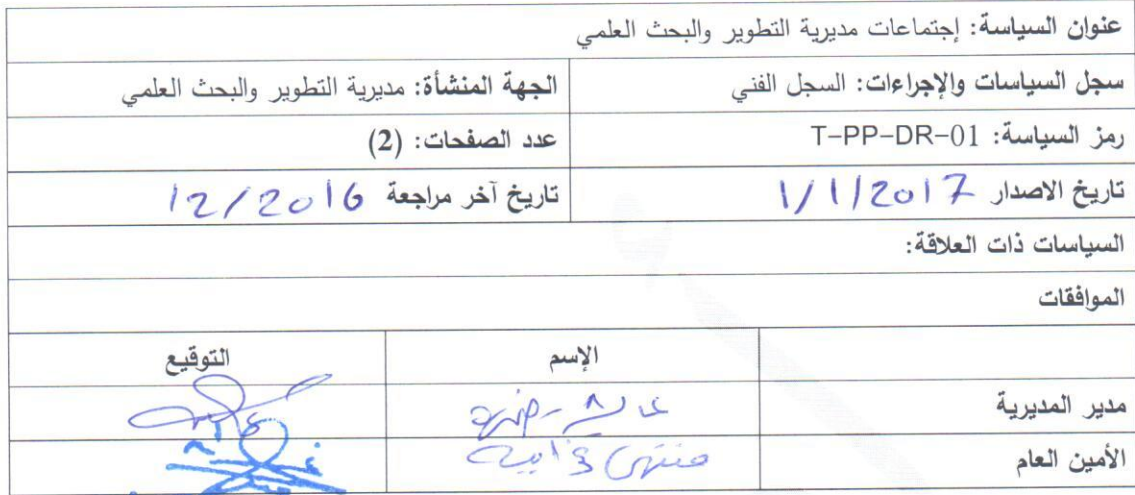 عنوان السياسة: إجتماعات مديرية التطوير والبحث العلمي
سجل السياسات والإجراءات: السجل الفني الجهة المنشأة: مديرية التطوير والبحث العلمي
رمز السياسة: T-PP-DR-01 عدد الصفحات: (2)
تاريخ الاصدار 1/1/2017 تاريخ آخر مراجعة 12/2016
السياسات ذات العلاقة:
الموافقات
الإسم التوقيع
مدير المديرية
الأمين العام